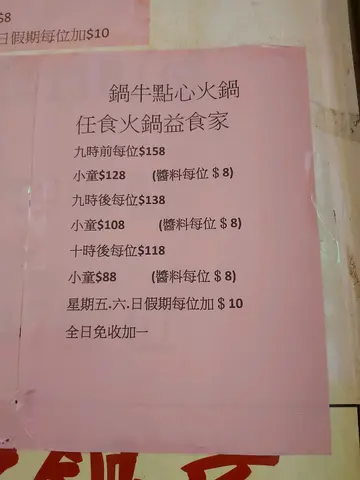 $8
日假期每位加$10
鍋牛點心火鍋
任食火鍋益食家
九時前每位$158
小童$128 (醬料每位＄8)
九時後每位$138
小童$108 (醬料每位＄8)
十時後每位$118
小童$88 (醬料每位＄8)
星期五.六.日假期每位加＄10
全日免收加一